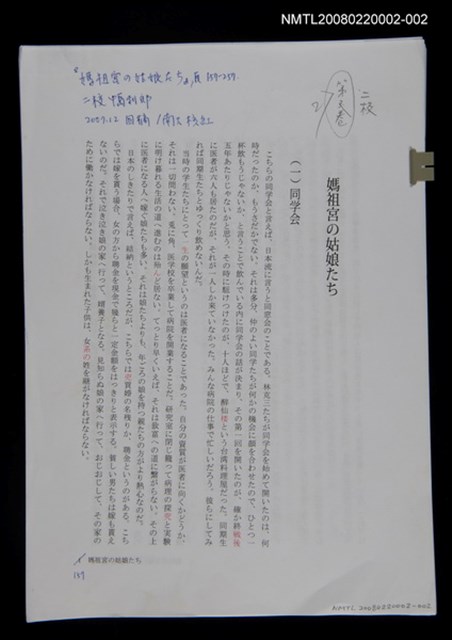 NMTL20080220002-002
『媽祖宮の姑娘たち』頁159-259.
二校
2009.12 回稿
二校
第 卷
媽祖宮の姑娘たち
(一) 同学会
こちらの同学会と言えば、日本流に言うと同窓会のことである。林克三たちが同学会を始めて開いたのは、何
時だったのか、もうさだかでない。それは多分、仲のよい同学たちが何かの機会に顔を合わせたので、ひとつ一
杯飲もうじゃないか、と言うことで飲んでいる内に同学会の話が決まり、その第一回を開いたのが、確か終戦後
五年あたりじゃないかと思う。その時に駆けつけたのが、十人ほどで、酔仙楼という台湾料理屋だった。同期生
に医者が六人も居たのだが、それが一人しか来ていなかった。みんな病院の仕事で忙しいだろう。彼らにしてみ
れば同期生たちとゆっくり飲めないんだ。
当時の学生たちにとって一生の願望というのは医者になることであった。自分の資質が医者に向くかどうか、
それは一切問わない。兎に角、医学校を卒業して病院を開業することだ。研究室に閉じ籠って病理の探究と実験
に明け暮れる生活の道へ進むのは殆んど居ない。てっとり早くいえば、それは致富への道に繋がらない。その上
に医者になる人へ嫁ぐ娘たちも多い。それは娘たちよりも、年ごろの娘を持つ親たちの方がより熱心なのだ。
日本のしきたりで言えば、結納というところだが、こちらでは売買婚の名残りか、聘金というのがある。こち
らでは嫁を貰う場合、女の方から聘金を現金で幾らと一定金額をはっきりと表示する。貧しい男たちは嫁も貰え
ないのだ。それで泣き泣き娘の家へ行って、婿養子となる。見知らぬ娘の家へ行って、おじおじして、その家の
ために働かなければならない。しかも生まれた子供は、女系の姓を継がなければならない。
媽祖宮の姑娘たち
159
NMTL20080220002-002